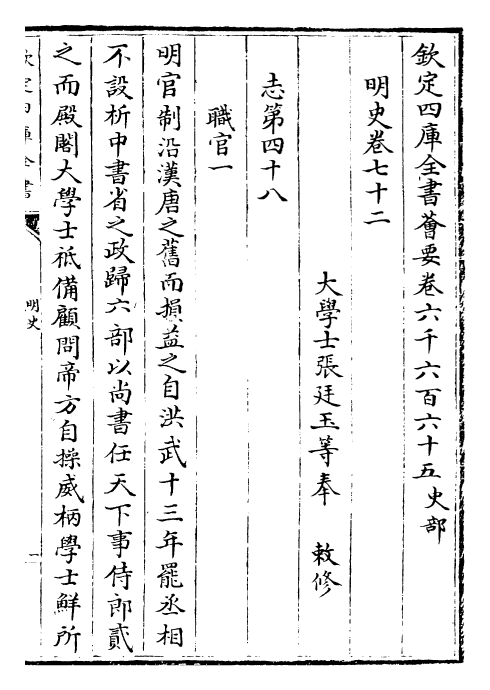 欽定四庫全書薈要卷六千六百六十五史部
明史卷七十二
大學士張廷玉等奉　敕修
志第四十八
職官一
明官制沿漢唐之舊而損益之自洪武十三年罷丞相
不設析中書省之政歸六部以尚書任天下事侍郎貳
之而殿閣大學士祗備顧問帝方自操威柄學士鮮所
欽定四庫全書
明史
一